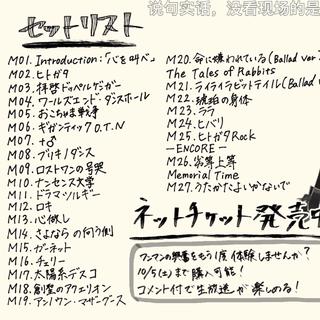 说句实话，没看现场的是
セットリスト
M01. Introduction:「心を叫べ」
M02. ヒトガタ
M03. 拝啓ドッペルゲンガー
M04. ワールズエンド・ダンスホール
M05. おこちゃま戦争
M06. ギガンティックO.T.N
M07. +♂
M08. ブリキノダンス
M09. ロストワンの号哭
M10. ナンセンス文学
M11. ドラマツルギー
M12. ロキ
M13. 心做し
M14. さよならの向う側
M15. ガーネット
M16. チェリー
M17. 太陽系デスコ
M18. 創聖のアクエリオン
M19. アンノウン・マザーグース
M20. 命に嫌われている (Ballad ver.
The Tales of Rabbits
M21. ライライラビットテイル (Ballad
M22. 琥珀の身体
M23. ララ
M24. ヒバリ
M25. ヒトガタRock
ーENCOREー
M26. 劣等上等
Memorial Time
M27. うたかたよいかないで
ネットチケット発売中
ワンマンの興奮をもう1度体験しませんか?
10/5(土)まで購入可能!
コメント付で生放送が楽しめる!